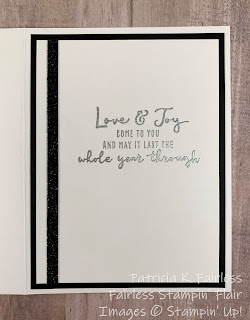 Love & Joy
COME TO YOU
AND MAY IT LAST THE
whole year through
Patricia K. Fairless
Fairless Stampin' Hair
Images © Stampin' Up!